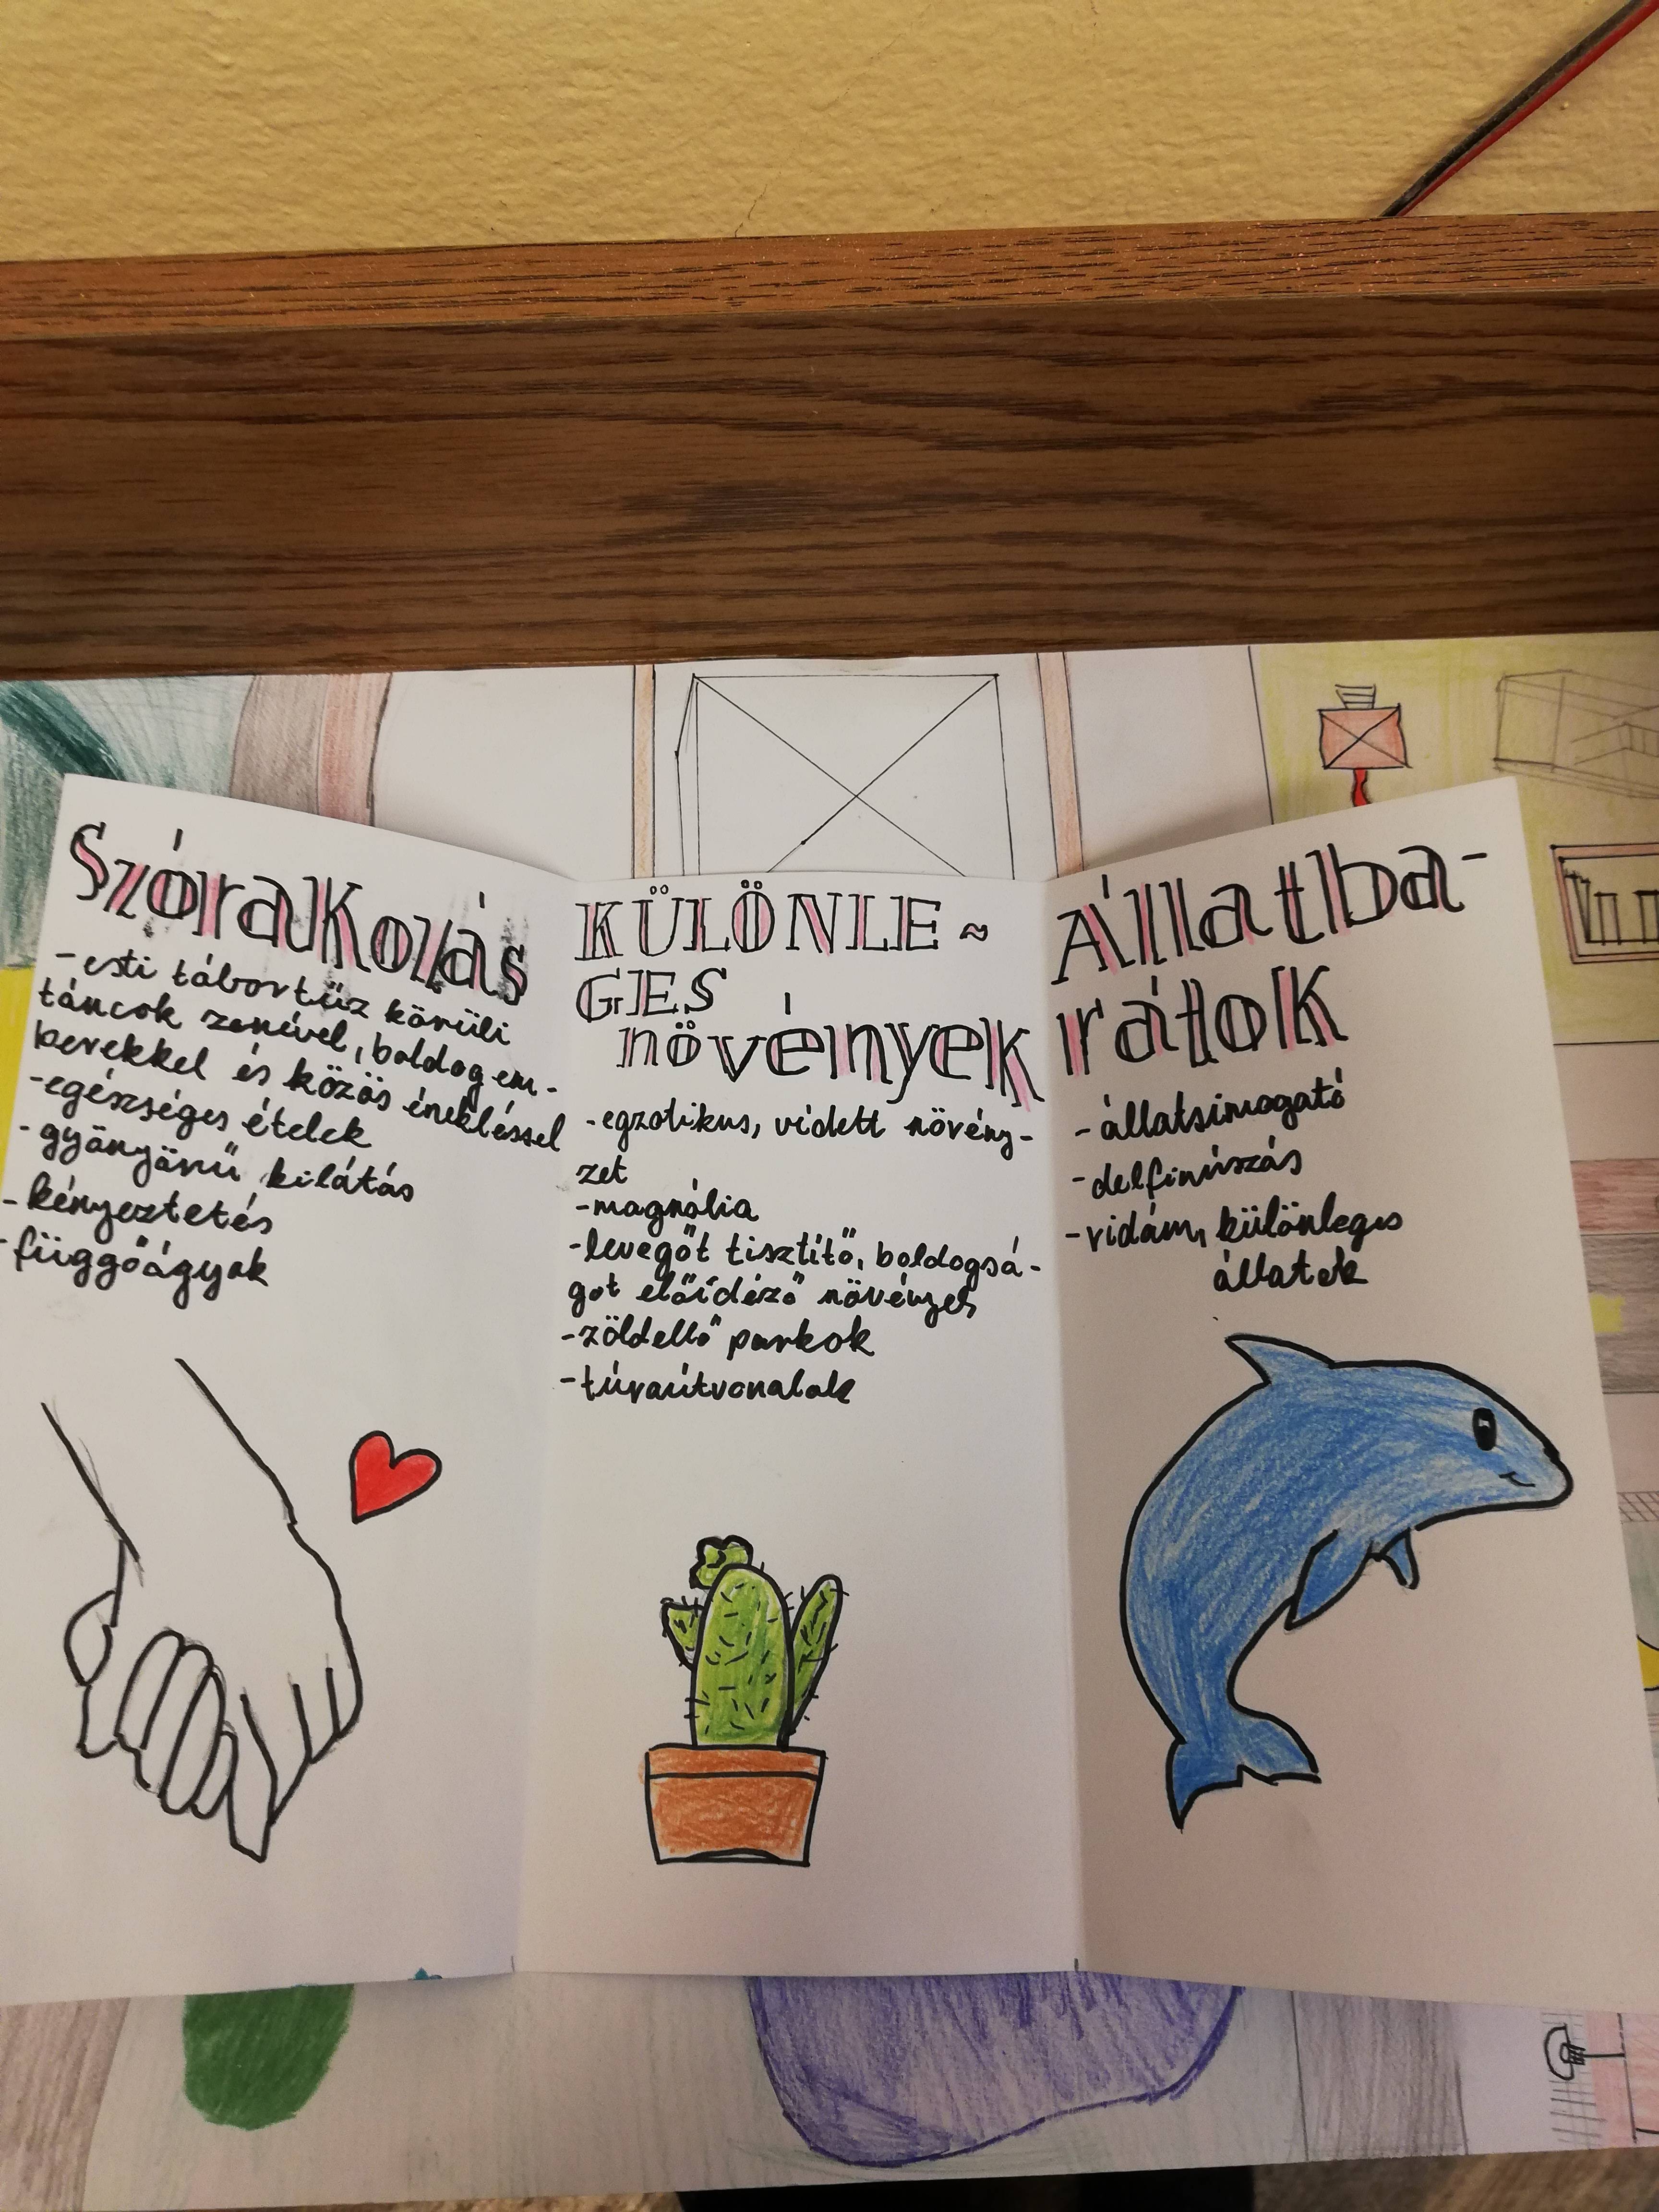 Szórakozás
-esti tábortűz körüli
táncok zenével, boldog em-
berekkel és közös énekléssel
-egészséges ételek
-gyönyörű kilátás
-kényeztetés
-függőágyak
KÜLÖNLE~
GES
növények
-egzotikus, védett növény-
zet
-magnólia
-levegőt tisztító, boldogsá-
got előidéző növények
-zöldellő parkok
-túraútvonalak
Állatba-
rátok
-állatsimogató
-delfinúszás
-vidám, különleges
állatok